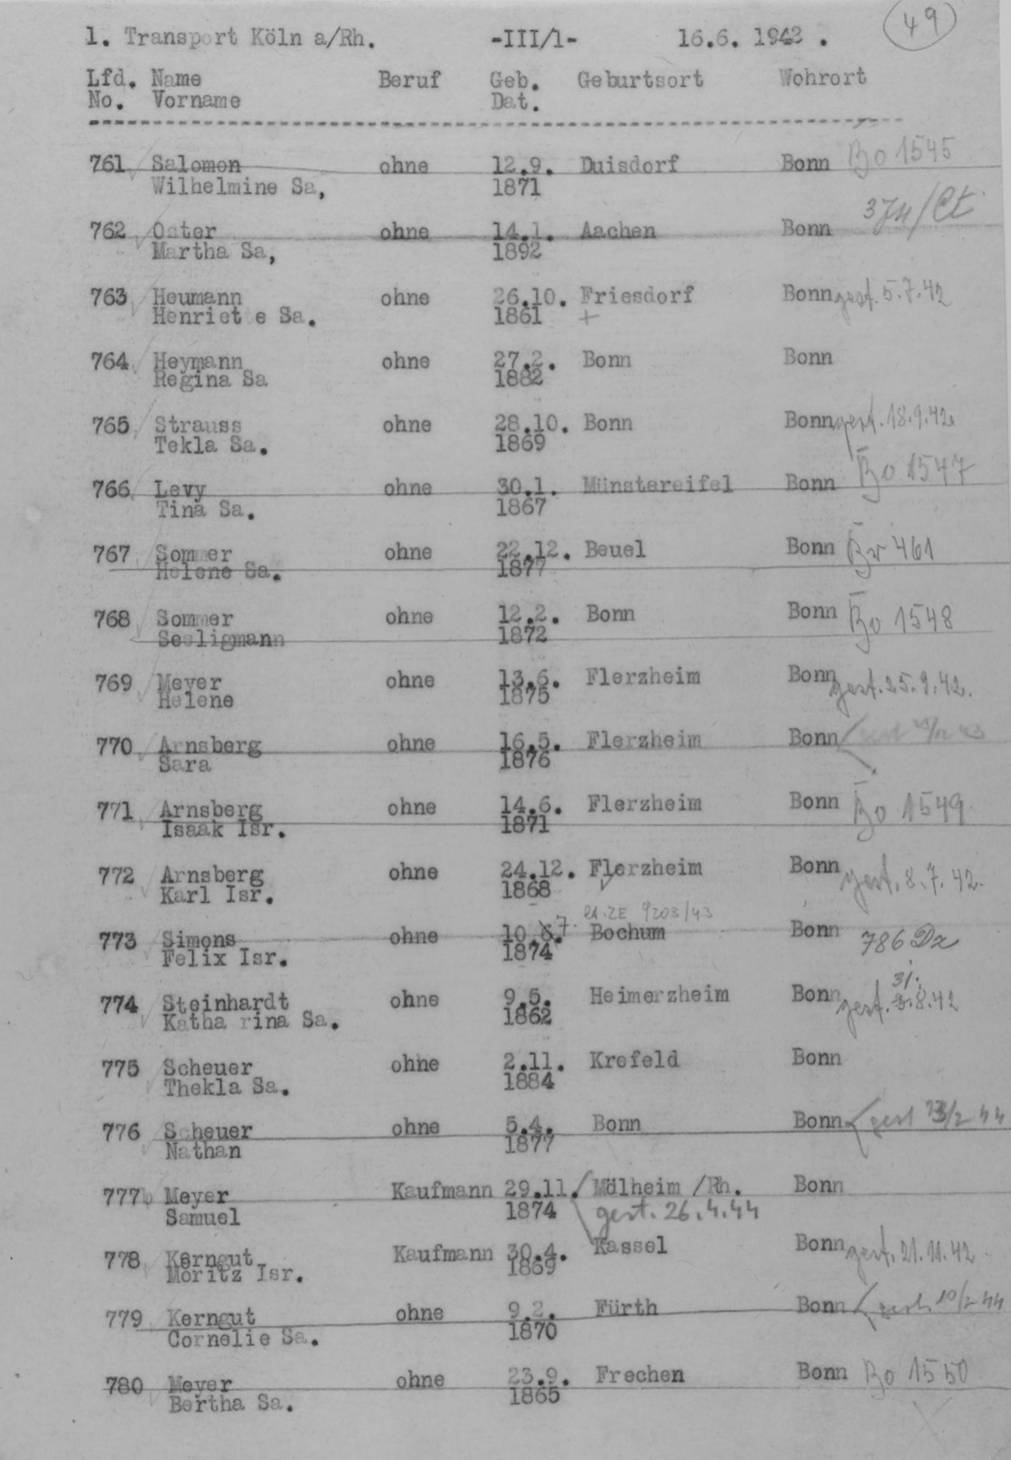 49
1. Transport Köln a/Rh. -III/1- 16.6. 1942 .
Lfd. Name Beruf Geb. Geburtsort Wohrort
No. Vorname Dat.
761 Salomon ohne 12.9. Duisdorf Bonn Bo 1545
Wilhelmine Sa, 1871
762 Oster ohne 14.1. Aachen Bonn
Martha Sa, 1892
763 Heumann ohne 26.10. Friesdorf Bonn gest. 5.7.42
Henriet e Sa. 1861 +
764 Heymann ohne 27.2. Bonn Bonn
Regina Sa 1882
765 Strauss ohne 28.10. Bonn Bonn gest. 18.9.42
Tekla Sa. 1869
766 Levy ohne 30.1. Münstereifel Bonn Bo 1547
Tina Sa. 1867
767 Sommer ohne 22.12. Beuel Bonn Br 461
Helene Sa. 1877
768 Sommer ohne 12.2. Bonn Bonn Bo 1548
Seeligmann 1872
769 Meyer ohne 13.6. Flerzheim Bonn gest. 25.9.42.
Helene 1875
770 Arnsberg ohne 16.5. Flerzheim Bonn
Sara 1876
771 Arnsberg ohne 14.6. Flerzheim Bonn Bo 1549
Isaak Isr. 1871
772 Arnsberg ohne 24.12. Flerzheim Bonn gest. 8.7.42.
Karl Isr. 1868
9203/43
773 Simons ohne 10. 7. Bochum Bonn 786
Felix Isr. 1874
774 Steinhardt ohne 9.5. Heimerzheim Bonn gest. 31.8.42
Katha rina Sa. 1862
775 Scheuer ohne 2.11. Krefeld Bonn
Thekla Sa. 1884
776 Scheuer ohne 5.4. Bonn Bonn gest
Nathan 1877
777 Meyer Kaufmann 29.11. Mölheim /Rh. Bonn
Samuel 1874 gest. 26.4.44
778 Kerngut Kaufmann 30.4. Kassel Bonn gest. 21.11.42
Moritz Isr. 1869
779 Kerngut ohne 9.2. Fürth Bonn gest. 10/2 44
Cornelie Sa. 1870
780 Meyer ohne 23.9. Frechen Bonn Bo 1550
Bertha Sa. 1865